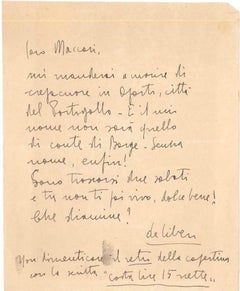 Caro Maccari,
mi manderai a morire di
crepacuore in Oporto, città
del Portogallo - E il mio
nome non sarà quello
di conte di Borgo - Senza
nome, enfin!
Sono trascorsi due sabati
e tu non ti fai vivo, dolce bene!
Che diamine!
de Libero
Non dimenticare il retro della copertina
con la scritta "costa lire 15 nette„